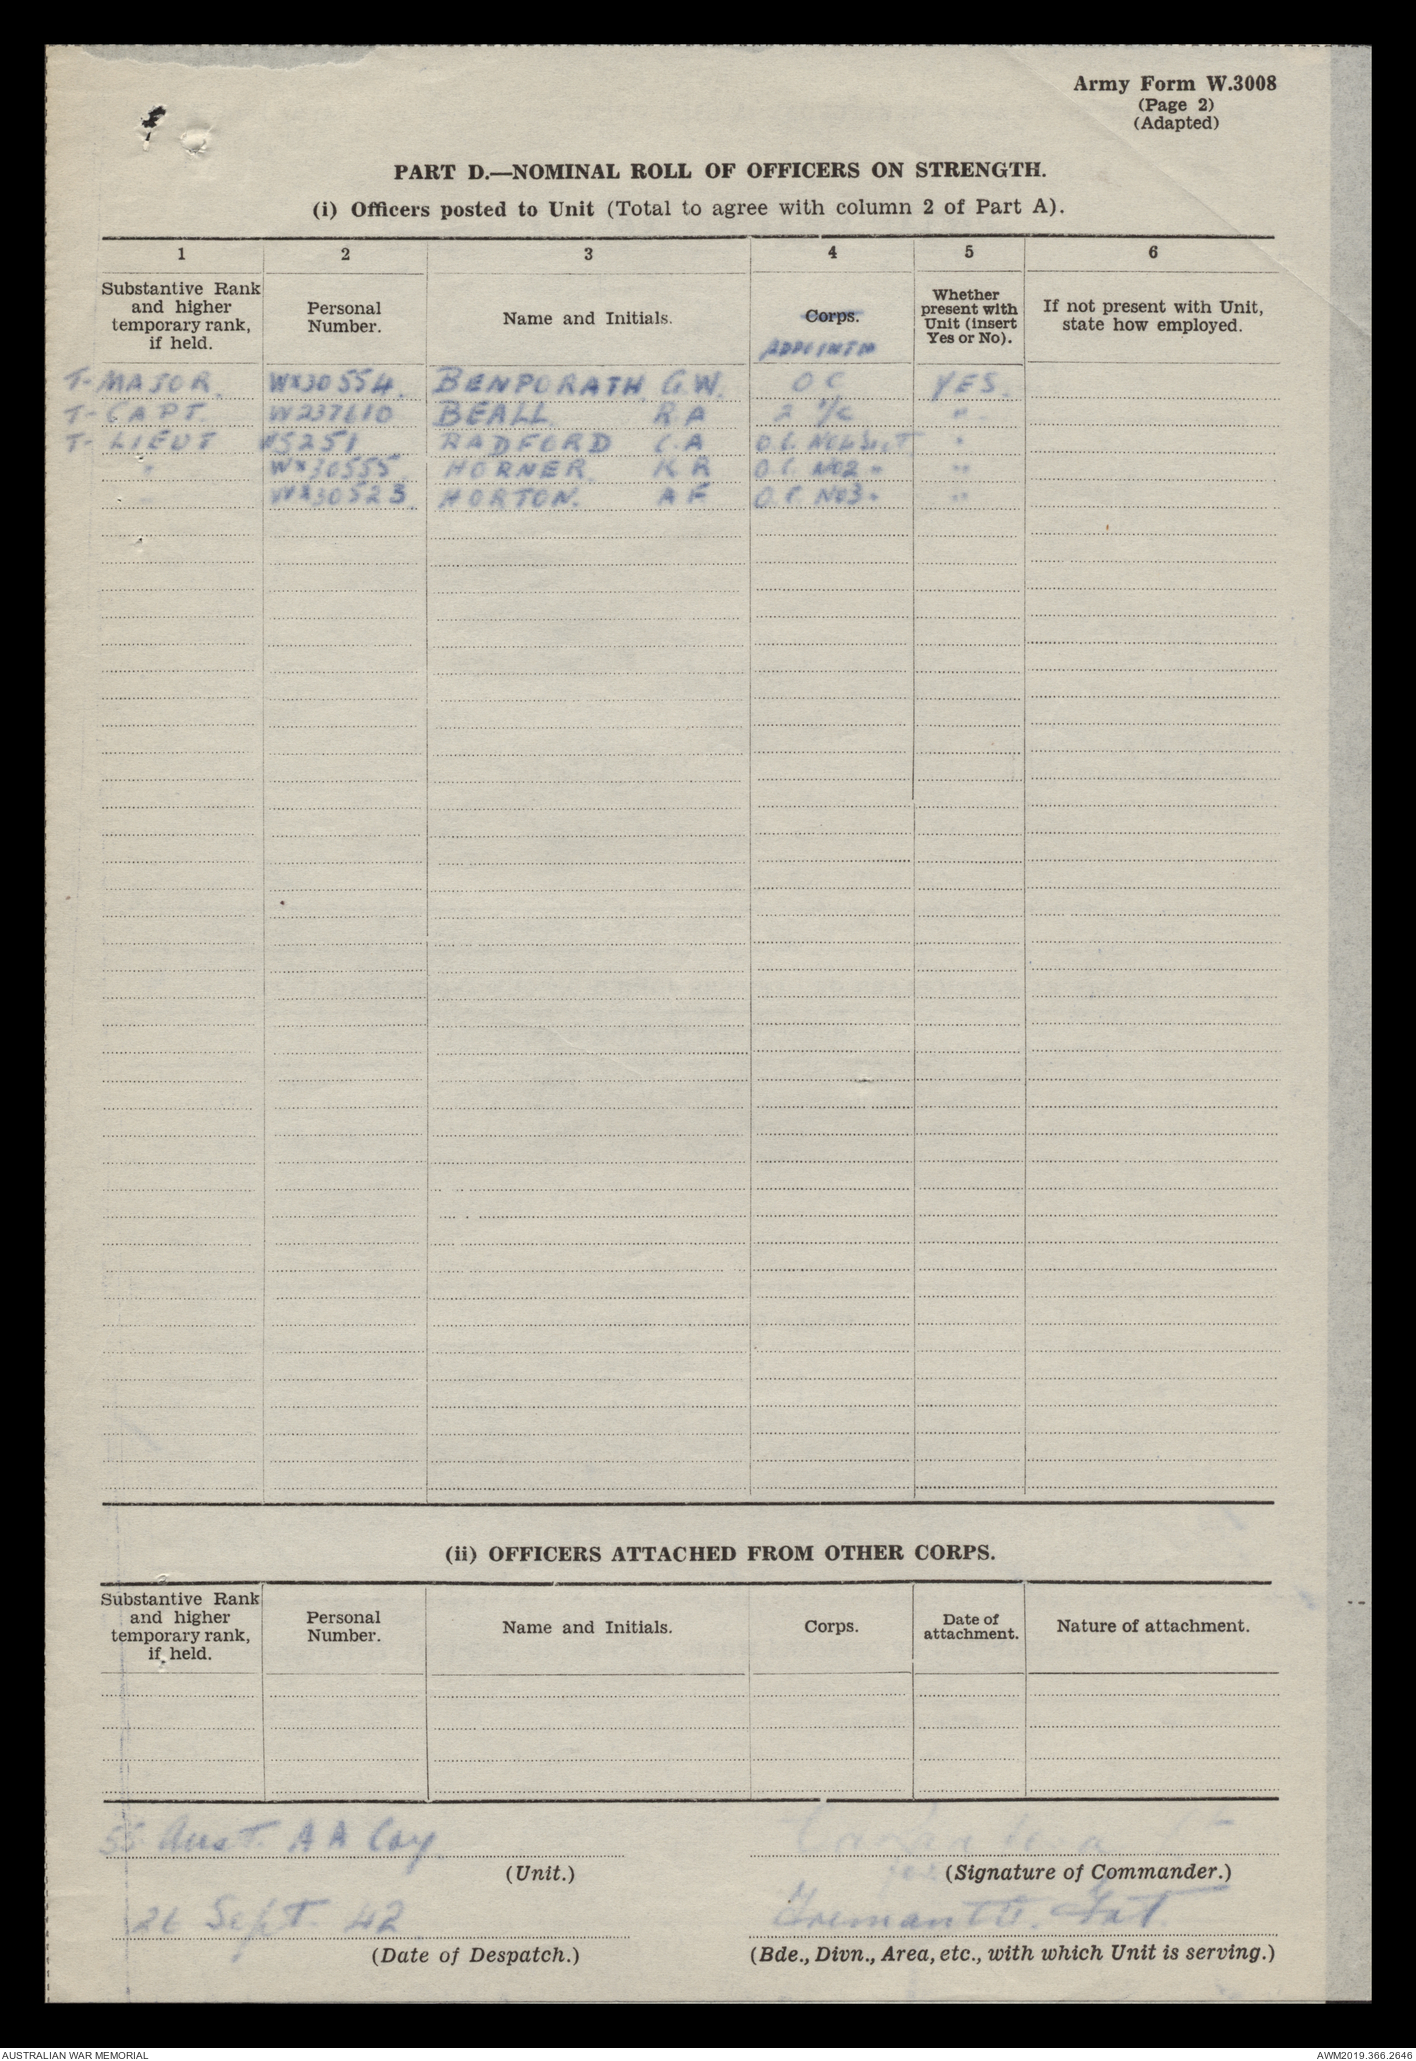 Army Form W.3008
(Page 2)
(Adapted)
PART D.—NOMINAL ROLL OF OFFICERS ON STRENGTH.
(i) Officers posted to Unit (Total to agree with column 2 of Part A).
1 2 3 4 5 6
Substantive Rank and higher temporary rank, if held. Personal Number. Name and Initials. Corps. Whether present with Unit (insert Yes or No). If not present with Unit, state how employed.
T-MAJOR. WX30554. BENPORATH. G.W. O C YES.
T-CAPT. W237610 BEALL R A 2 I/C "
T-LIEUT RADFORD C.A O.C. No1 Sect "
" WX30555 HORNER. K R O.C. NO2 " "
" WX30523. HORTON. A F. O.C. NO3 " "
(ii) OFFICERS ATTACHED FROM OTHER CORPS.
Substantive Rank and higher temporary rank, if held. Personal Number. Name and Initials. Corps. Date of attachment. Nature of attachment.
55 Aust. A A Coy
(Unit.) (Signature of Commander.)
26 Sept. 42 Fremantle. Fort.
(Date of Despatch.) (Bde., Divn., Area, etc., with which Unit is serving.)
AUSTRALIAN WAR MEMORIAL AWM2019.366.2646